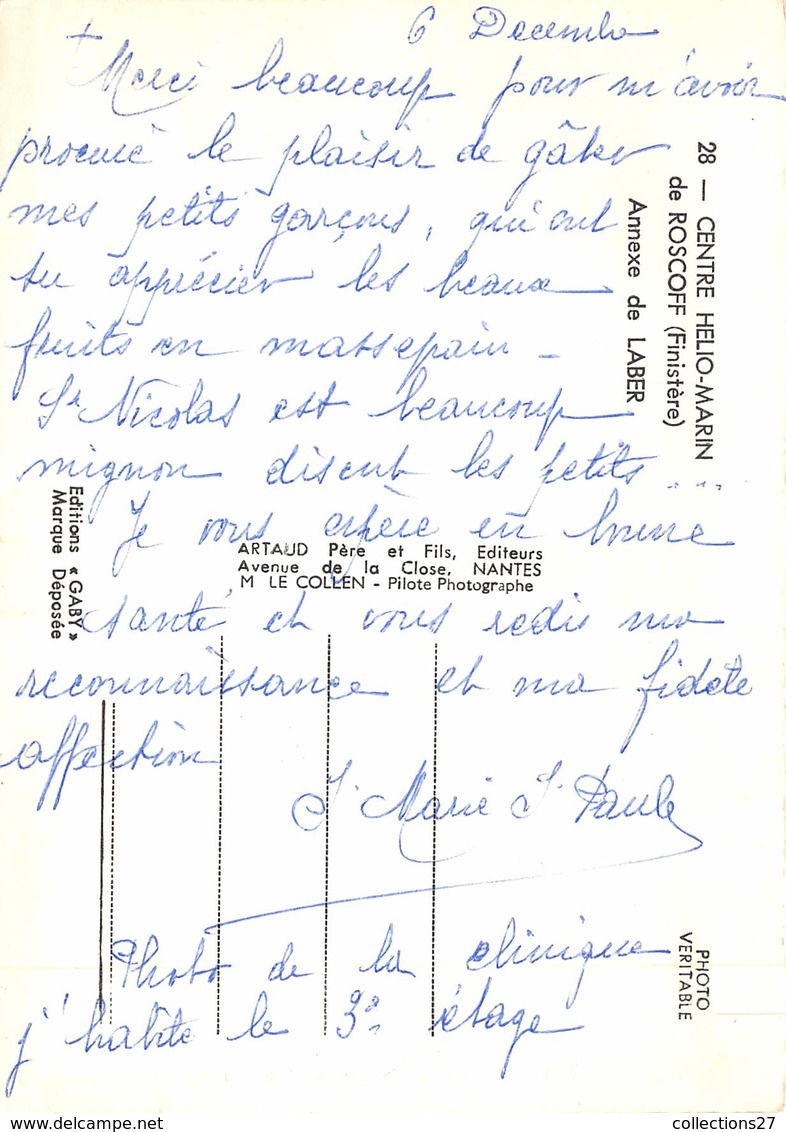 +
6 Decembre
Merci beaucoup pour m'avoir
procuré le plaisir de gâter
mes petits garçons, qui ont
su apprécier les beaux
fruits en massepain -
St Nicolas est beaucoup
mignon disent les petits ...
Je vous espère en bonne
santé et vous redis ma
reconnaissance et ma fidèle
affection
Sr Marie St Paule
Photo de la clinique
j'habite le 3e étage
28 — CENTRE HELIO-MARIN
de ROSCOFF (Finistère)
Annexe de LABER
Editions « GABY »
Marque Déposée
ARTAUD Père et Fils, Editeurs
Avenue de la Close, NANTES
M LE COLLEN - Pilote Photographe
PHOTO
VERITABLE
collections27